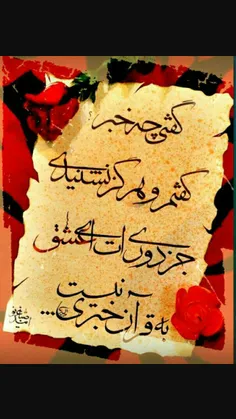 گفتی چه خبر
گفتم و هرگز نشنیدی
جز دوری ات ای عشق
به قرآن خبری نیست...